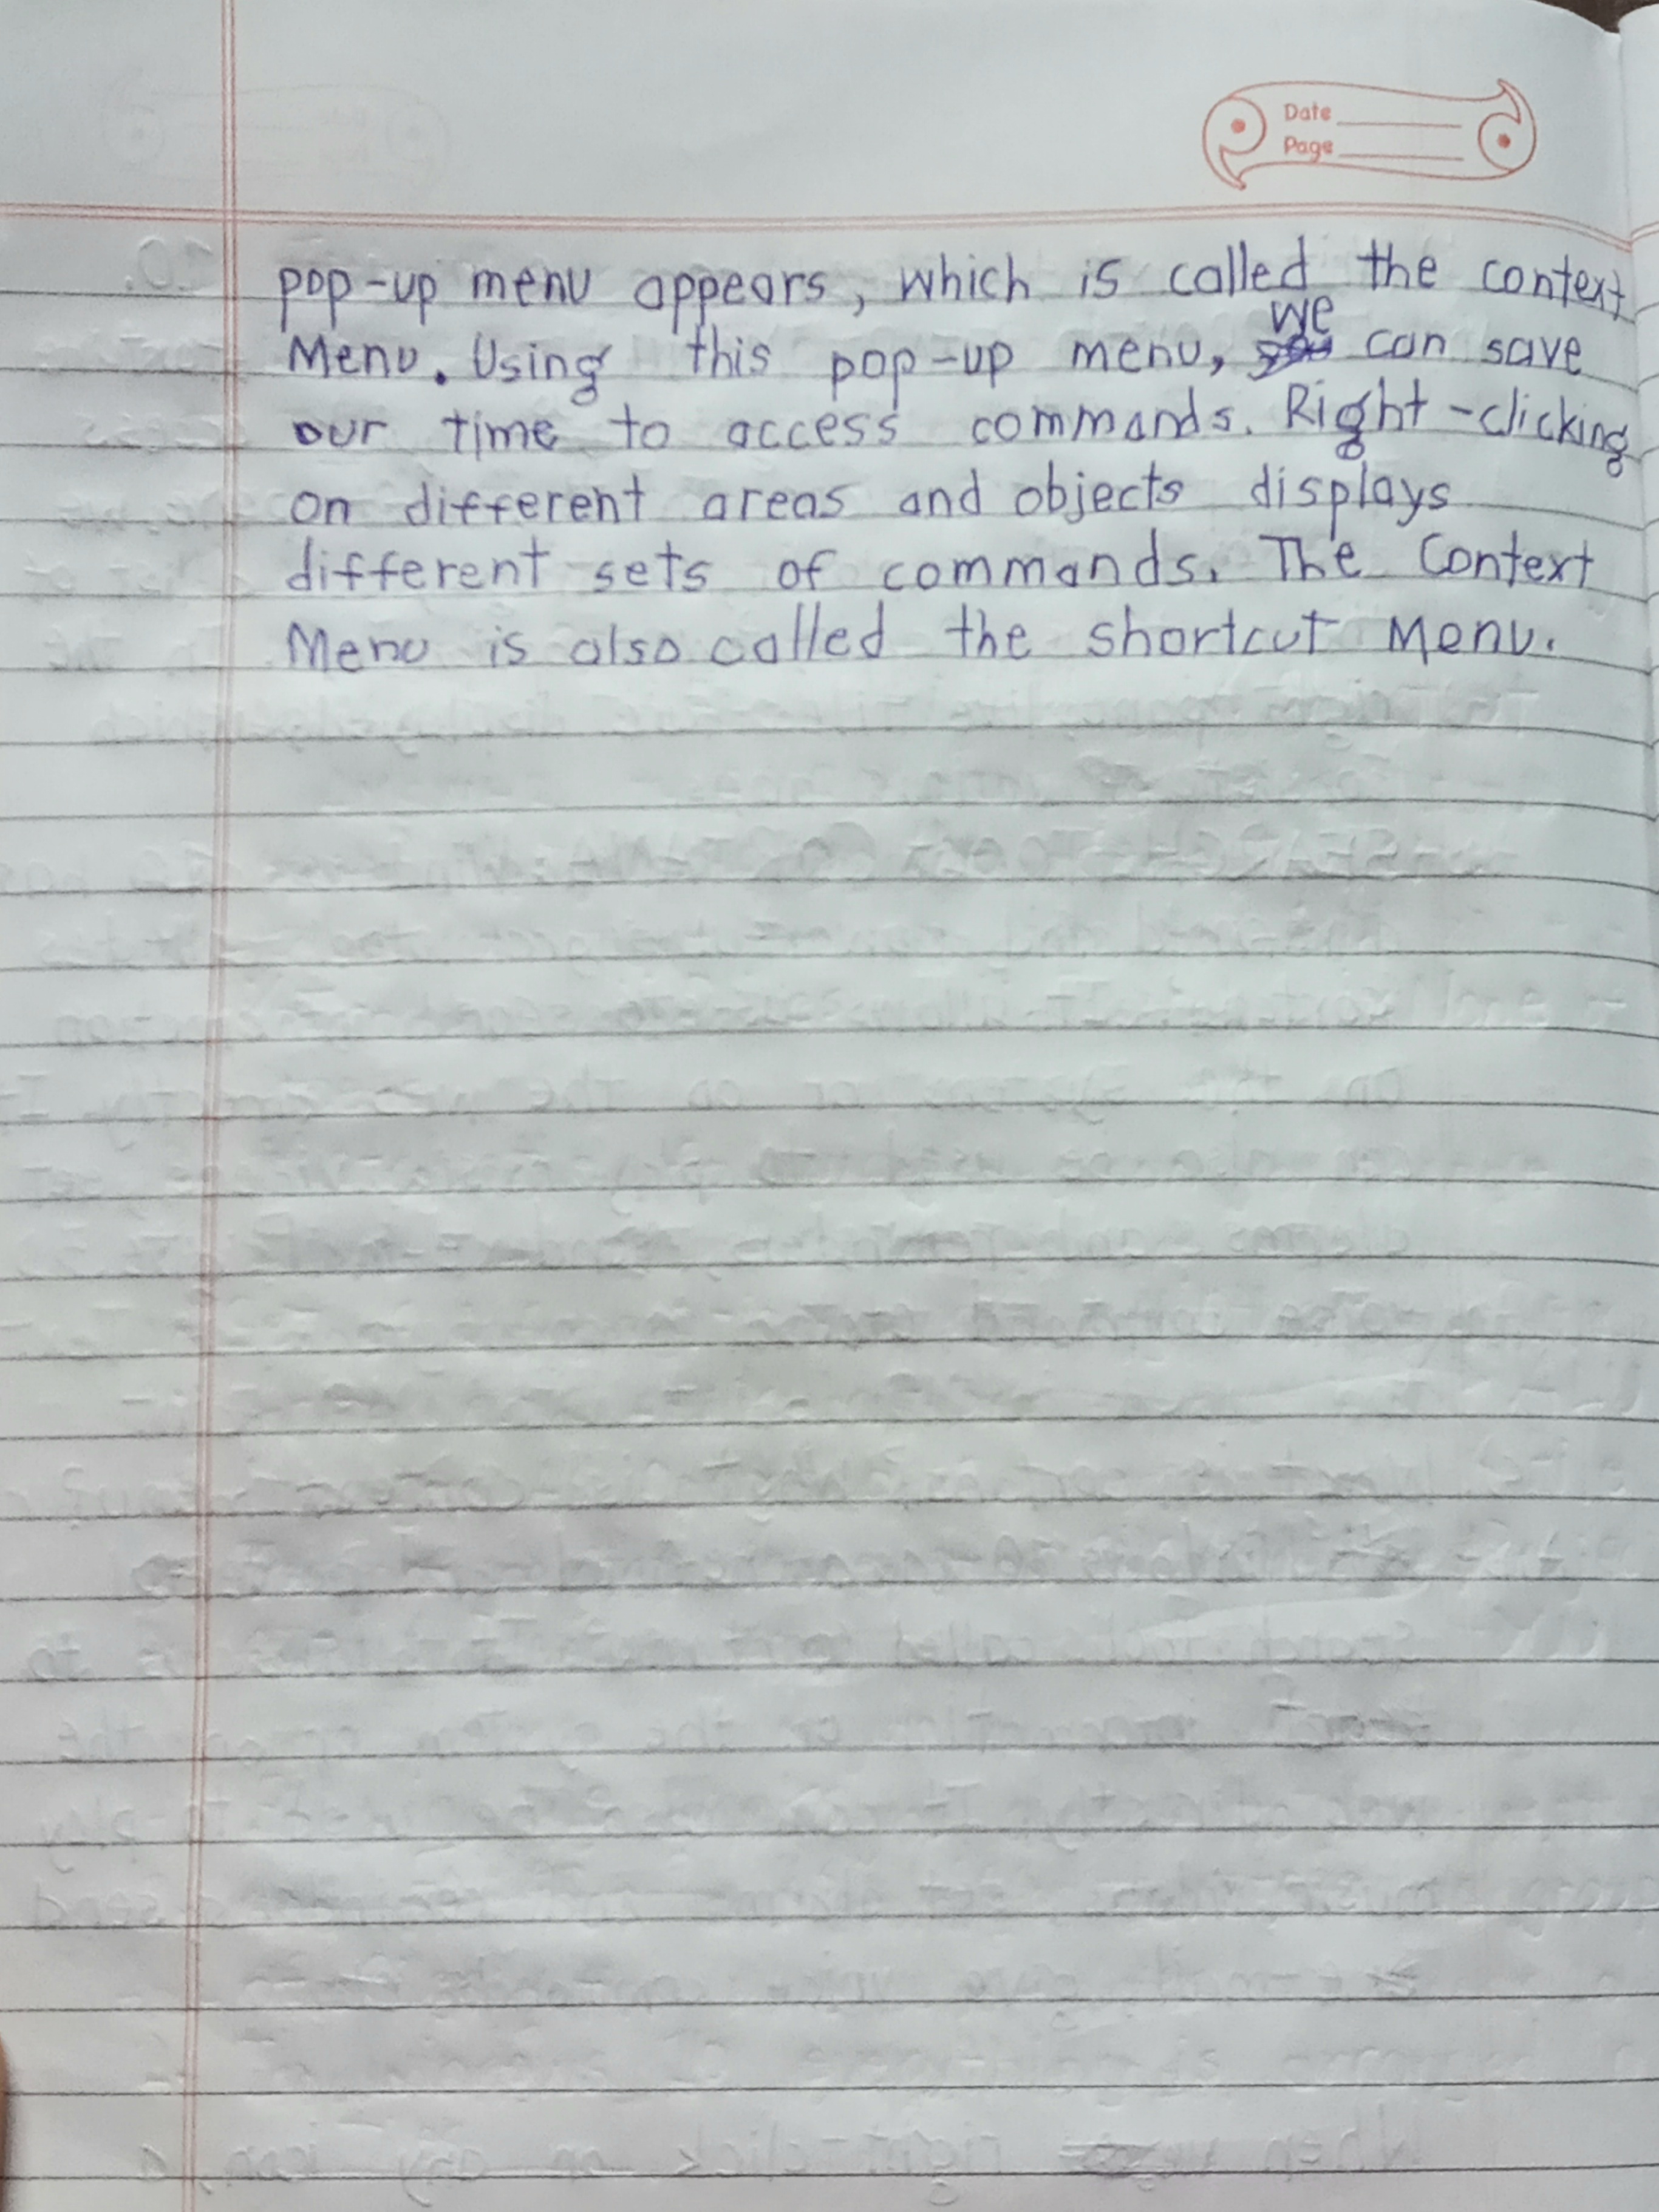 Date
Page
pop-up menu appears, which is called the context
Menu. Using this pop-up menu, we can save
our time to access commands. Right-clicking
on different areas and objects displays
different sets of commands. The Context
Menu is also called the shortcut Menu.